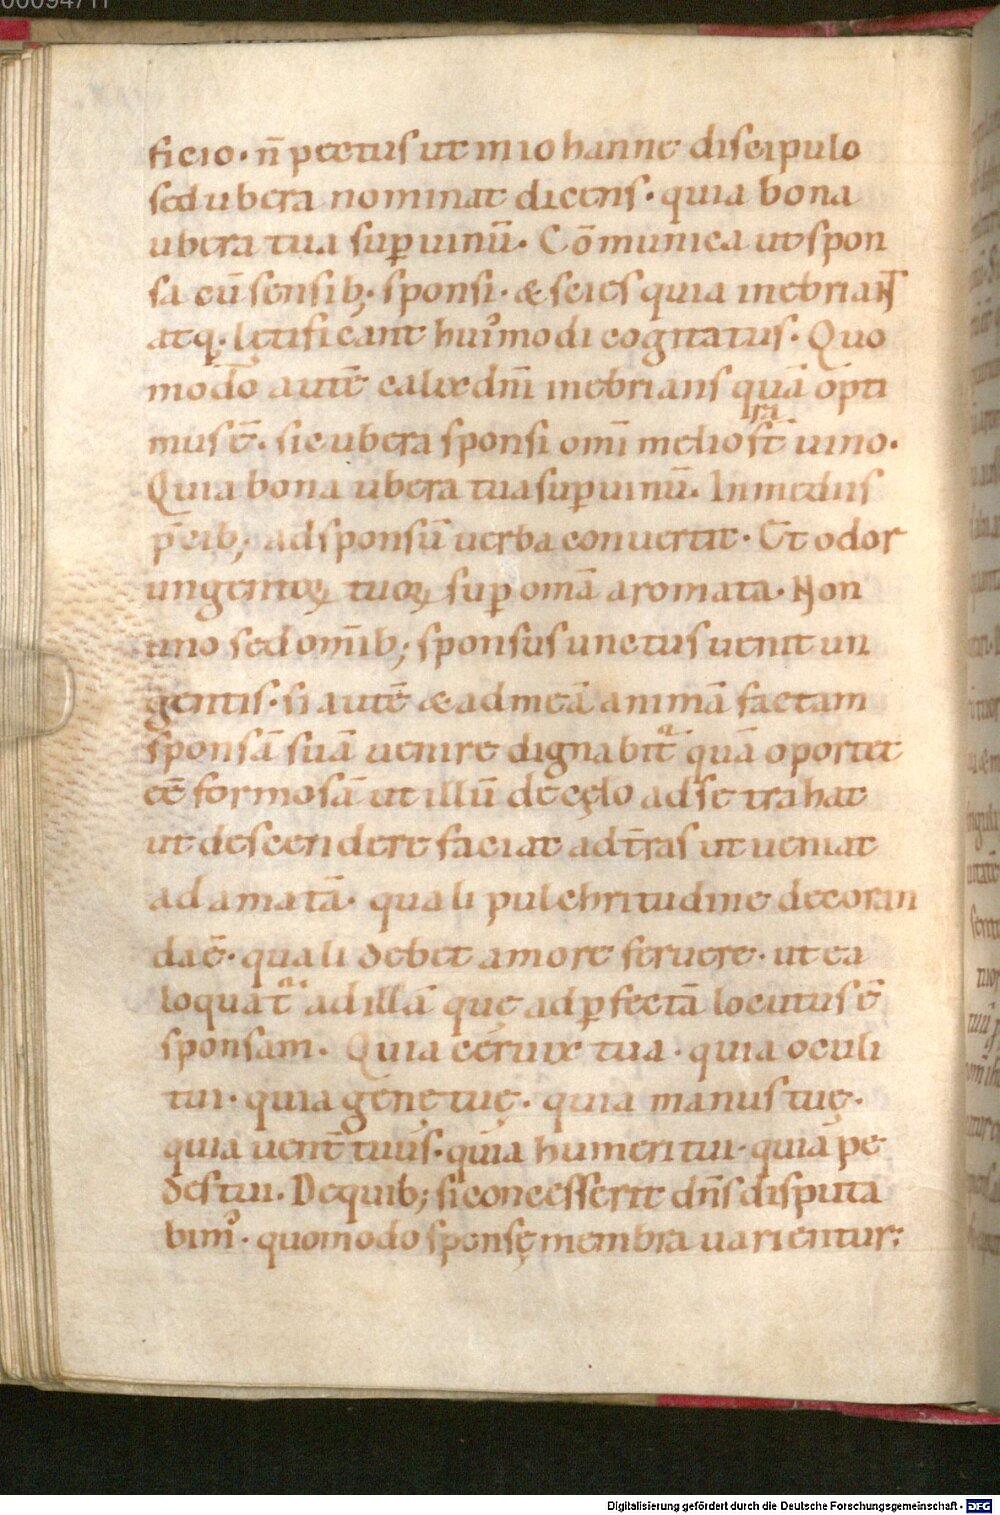 00094711
ficio· n̄ pectus ut in iohanne discipulo
sed ubera nominat dicens· quia bona
ubera tua suꝑ uinū· Cōmunica ut spon
sa cū sensib; sponsi· & scies quia inebriant̄
atq;· lętificant hui᾽modi cogitatus· Quo
modō autē calix dn̄i inebrians quā opti
mus ē· sic ubera sponsi om̄i meliora st̄ uino·
Quia bona ubera tua suꝑ uinū· In mediis
p̄cib; ad sponsū uerba conuertit· Et odor
ungentoꝝ tuoꝝ suꝑ om̄a aromata· Non
uno sed om̄ib; sponsus unctus uenit un
gentis· si autē & ad meā animā factam
sponsā suā uenire dignabit᷑ quā oportet
eē formosā ut illū de cęlo ad se trahat
ut descendere faciat ad t̄ras ut ueniat
ad amatā· quali pulchritudine decoran
da ē· quali debet amore feruere· ut ea
loquat᷑ ad illā quę ad ꝑfectā locutus ē
sponsam· Quia ceruix tua· quia oculi
tui· quia genę tuę· quia manus tuę·
quia uent̄ tuus· quia humeri tui· quia pe
des tui· De quib; si concesserit dn̄s disputa
bim᾽· quomodo sponsę membra uarientur;
Digitalisierung gefördert durch die Deutsche Forschungsgemeinschaft - DFG